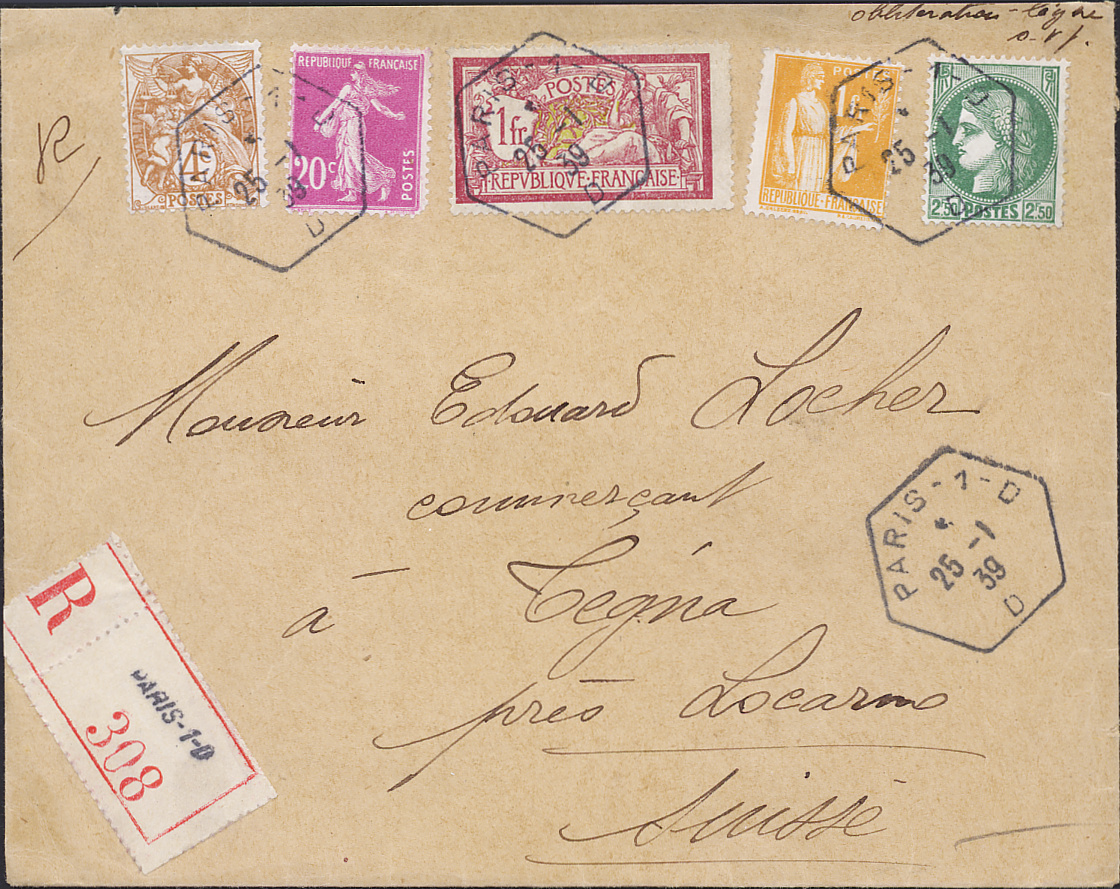 obliteration légère
s.v.p.
R
4c
POSTES
RÉPUBLIQUE FRANÇAISE
20c
POSTES
POSTES
1fr
REPVBLIQVE·FRANÇAISE
REPUBLIQUE-FRANCAISE
2,50 POSTES 2,50
PARIS-1-D
*
25 -1
39
D
PARIS-1-D
*
25 -1
39
D
PARIS-1-D
*
25 -1
39
D
Monsieur Edouard Locher
commerçant
à Tégna
près Locarno
Suisse
PARIS-1-D
*
25 -1
39
D
R
PARIS-1-D
308